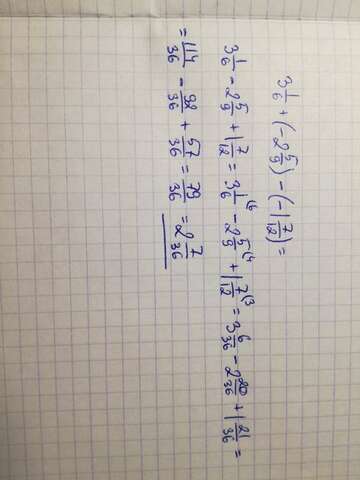 3 1/6 + (-2 5/9) - (-1 7/12) =
3 1/6 - 2 5/9 + 1 7/12 = 3 1/6 (6 - 2 5/9 (4 + 1 7/12 (3 = 3 6/36 - 2 20/36 + 1 21/36 =
= 114/36 - 92/36 + 57/36 = 79/36 = 2 7/36